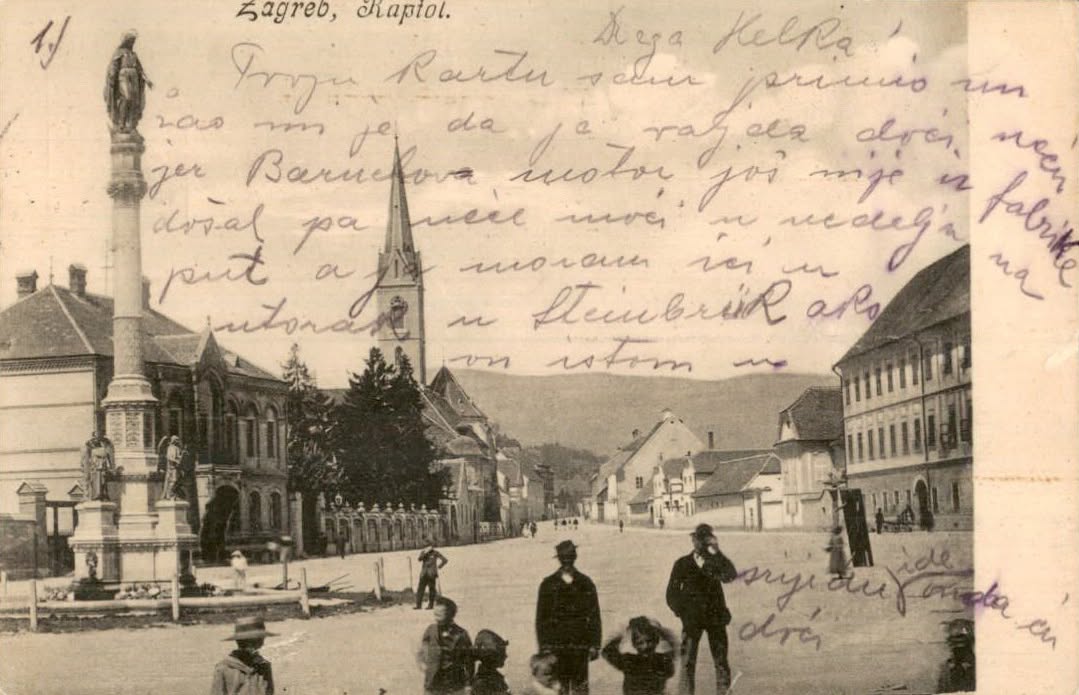 Zagreb, Kaptol.
1.)
Draga Helka!
Tvoju kartu sam primio
žao mi je da ja valjda doći neću
jer Baruchova motor još nije iz fabrike
došal pa neće moći u nedelju na
put a ja moram ići u
utorak u Steinbrük ako
on istom u
srijedu ide onda ću
doći